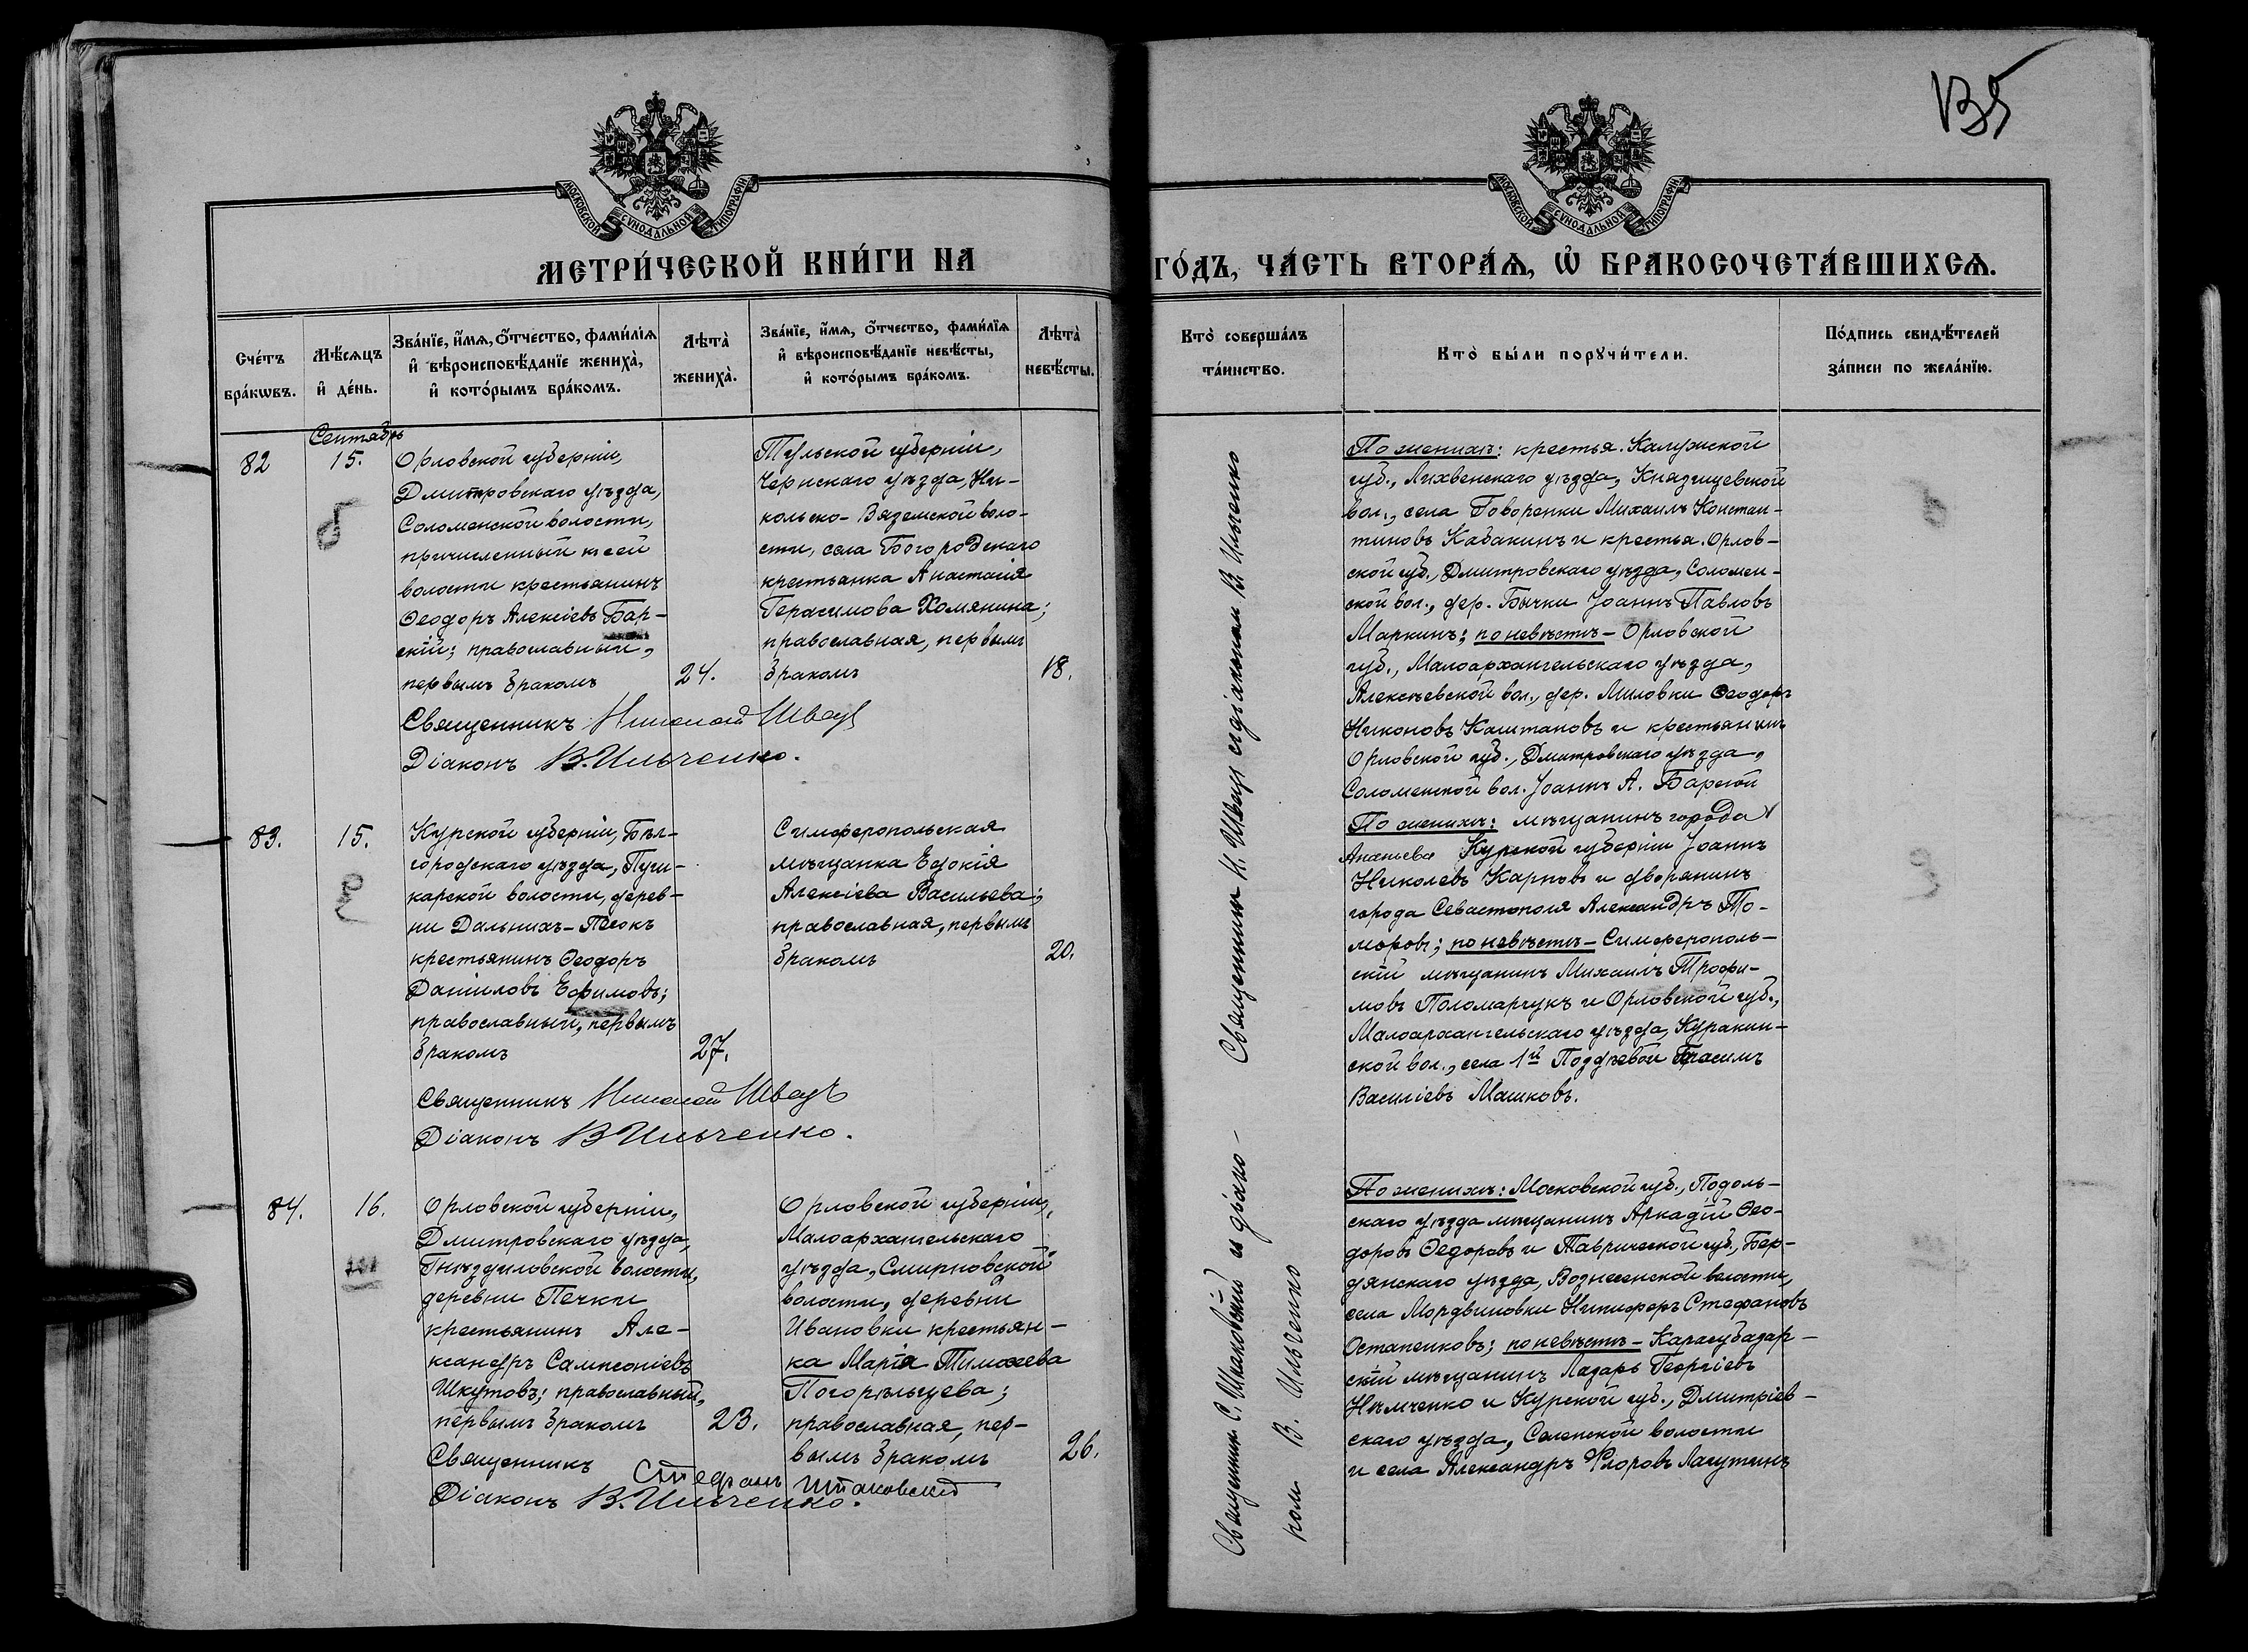 135
МОСКОВСКОЙ СѴНОДАЛЬНОЙ ТИПОГРАФІИ
МОСКОВСКОЙ СѴНОДАЛЬНОЙ ТИПОГРАФІИ
МЕТРИ́ЧЕСКОЙ КНИ́ГИ НА ГО́ДЪ, ЧА́СТЬ ВТОРА́Ѧ, Ѽ БРАКОСОЧЕТА́ВШИХСѦ.
Сче́тъ
бра́кѡвъ.
Мѣ́сѧцъ
и҆ де́нь.
Зва́нїе, и҆́мѧ, ѻ҆́тчество, фами́лїѧ
и҆ вѣроисповѣ́данїе жениха̀,
и҆ кото́рымъ бра́комъ.
Лѣта̀
жениха̀.
Зва́нїе, и҆́мѧ, ѻ҆́тчество, фами́лїѧ
и҆ вѣроисповѣ́данїе невѣ́сты,
и҆ кото́рымъ бра́комъ.
Лѣта̀
невѣ́сты.
Кто̀ соверша́лъ
та́инство.
Кто̀ бы́ли порꙋчи́тели.
По́дпись свидѣ́телей
за́писи по жела́нїю.
Сентябрь
82
15.
Орловской губерніи,
Дмитровскаго уѣзда,
Соломенской волости,
причисленный к сей
волости крестьянинъ
Ѳеодоръ Алексіевъ Бар-
скій; православный,
первымъ бракомъ
24.
Тульской губерніи,
Чернскаго уѣзда, Ни-
кольско-Вяземской воло-
сти, села Богородскаго
крестьянка Анастасія
Герасимова Хомякина;
православная, первымъ
бракомъ
18.
Священникъ Николай Швецъ
Діаконъ В. Ильченко.
Священникъ Н. Швецъ съ діакономъ В. Ильченко
По женихѣ: крестья. Калужской
губ., Лихвенскаго уѣзда, Князищевской
вол., села Говоренки Михаилъ Констан-
тиновъ Кабакинъ и крестья. Орлов-
ской губ., Дмитровскаго уѣзда, Соломен-
ской вол., дер. Бычки Іоаннъ Павловъ
Маркинъ; по невѣстѣ - Орловской
губ., Малоархангельскаго уѣзда,
Алексѣевской вол., дер. Миловки Ѳеодоръ
Никоновъ Каштановъ и крестьянинъ
Орловской губ., Дмитровскаго уѣзда,
Соломенской вол. Іоаннъ А. Барской
83.
15.
Курской губерніи, Бѣл-
городскаго уѣзда, Пуш-
карской волости, дерев-
ни Дальнихъ-Песокъ
крестьянинъ Ѳеодоръ
Даніиловъ Ефимовъ;
православный, первымъ
бракомъ
27.
Симферопольская
мѣщанка Евдокія
Алексіева Васильева;
православная, первымъ
бракомъ
20.
Священникъ Николай Швецъ
Діаконъ В Ильченко.
По женихѣ: мѣщанинъ города
Ананьева Курской губерніи Іоаннъ
Николевъ Карповъ и дворянинъ
города Севастополя Александръ То-
моровъ; по невѣстѣ - Симферополь-
скій мѣщанинъ Михаилъ Трофи-
мовъ Поломарчукъ и Орловской губ.,
Малоархангельскаго уѣзда, Куракин-
ской вол., села 1й Поздѣевой Герасимъ
Василіевъ Машковъ.
84.
16.
Орловской губерніи,
Дмитровскаго уѣзда,
Гнѣздиловской волости,
деревни Печки
крестьянинъ Але-
ксандръ Сампсоніевъ
Шкутовъ; православный,
первымъ бракомъ
23.
Орловской губерніи,
Малоархангельскаго
уѣзда, Смирновской
волости, деревни
Ивановки крестьян-
ка Марія Тимоѳеева
Погорѣльцева;
православная, пер-
вымъ бракомъ
26.
Священникъ Стефанъ Шпаковскій
Діаконъ В. Ильченко.
Священникъ С. Шпаковскій и діако-
номъ В. Ильченко
По женихѣ: Московской губ., Подоль-
скаго уѣзда мѣщанинъ Аркадій Ѳео-
доровъ Ѳедоровъ и Таврической губ., Бер-
дянскаго уѣзда, Вознесенской волости,
села Мордвиновки Никифоръ Стефановъ
Остапенковъ; по невѣстѣ - Карасубазар-
скій мѣщанинъ Лазарь Георгіевъ
Нѣмченко и Курской губ., Дмитріев-
скаго уѣзда, Селенской волости
и села Александръ Флоровъ Лагутинъ